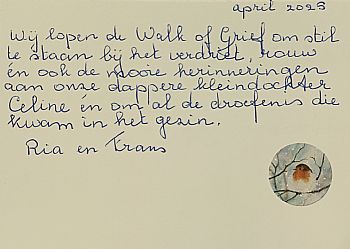 april 2025
Wij lopen de Walk of Grief om stil
te staan bij het verdriet, rouw
én ook de mooie herinneringen
aan onze dappere kleindochter
Celine en om al de droefenis die
kwam in het gezin.
Ria en Frans